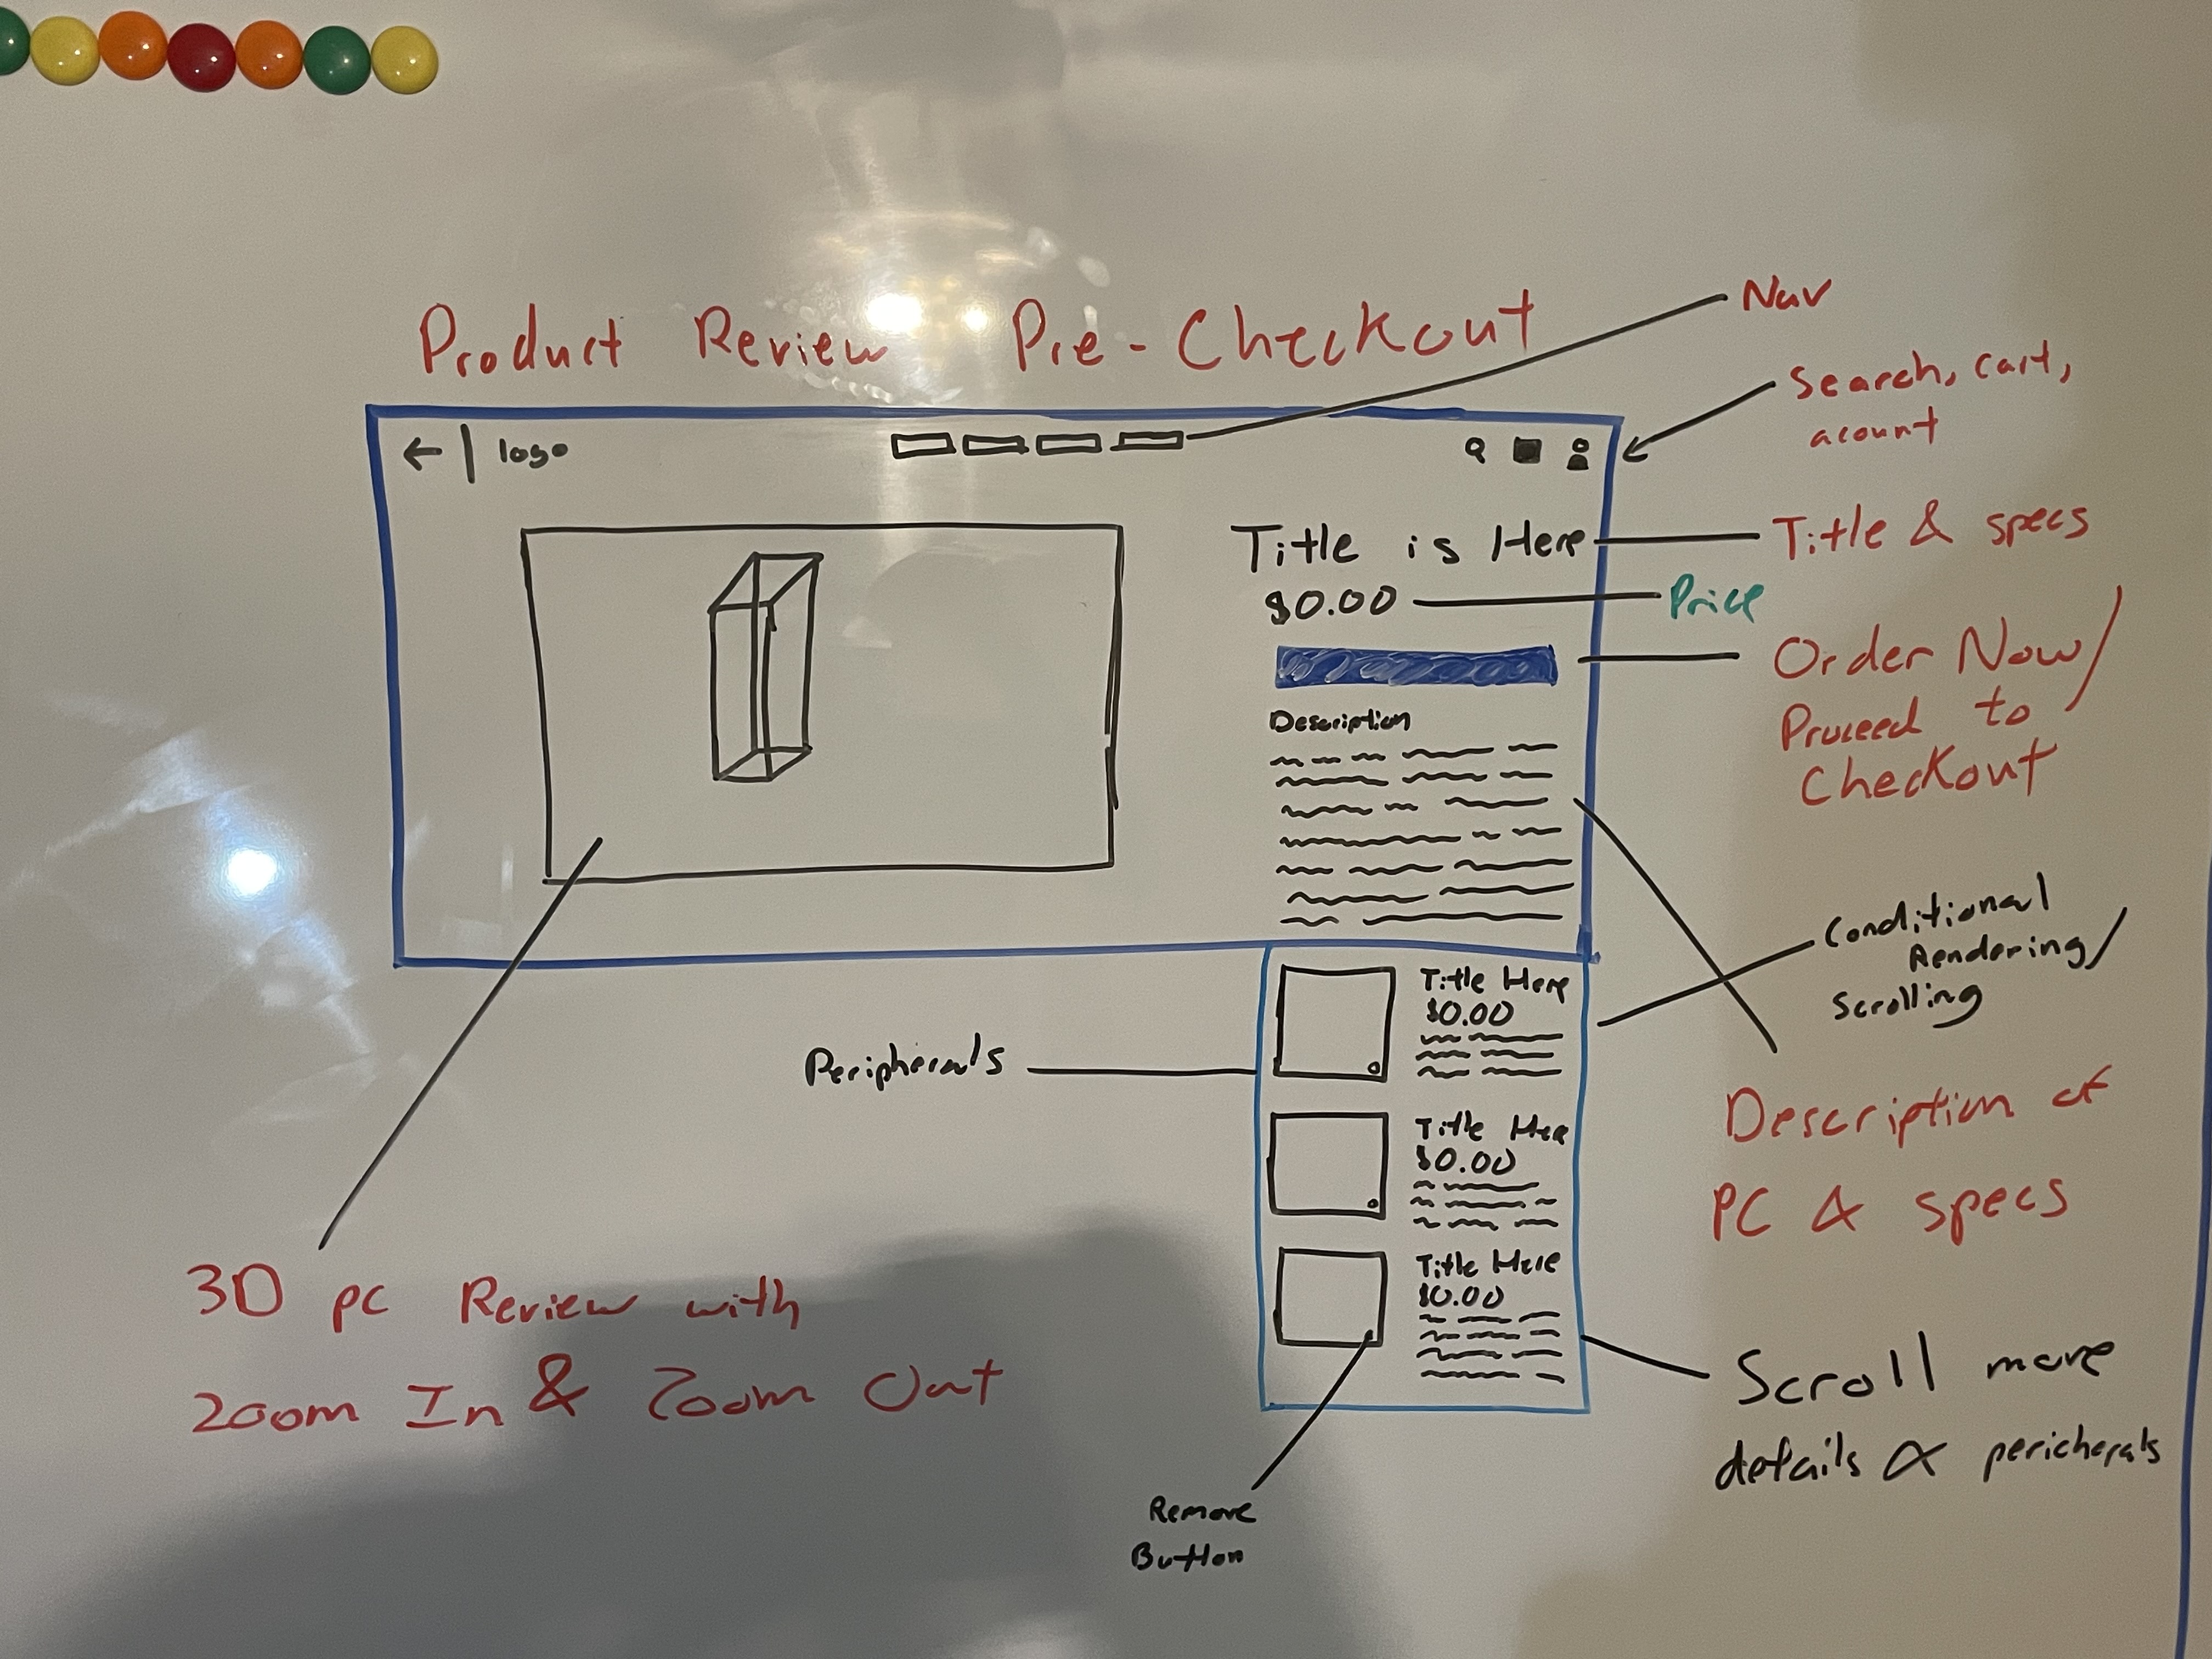 Product Review Pre-Checkout
Nav
Search, cart,
acount
logo
Title is Here
Title & specs
$0.00
Price
Order Now/
Proceed to
Checkout
Description
Conditional
Rendering/
Scrolling
Title Here
$0.00
Peripherals
Description of
PC & specs
Title Here
$0.00
Title Here
$0.00
3D pc Review with
Zoom In & Zoom Out
Scroll more
details & pericherals
Remove
Button